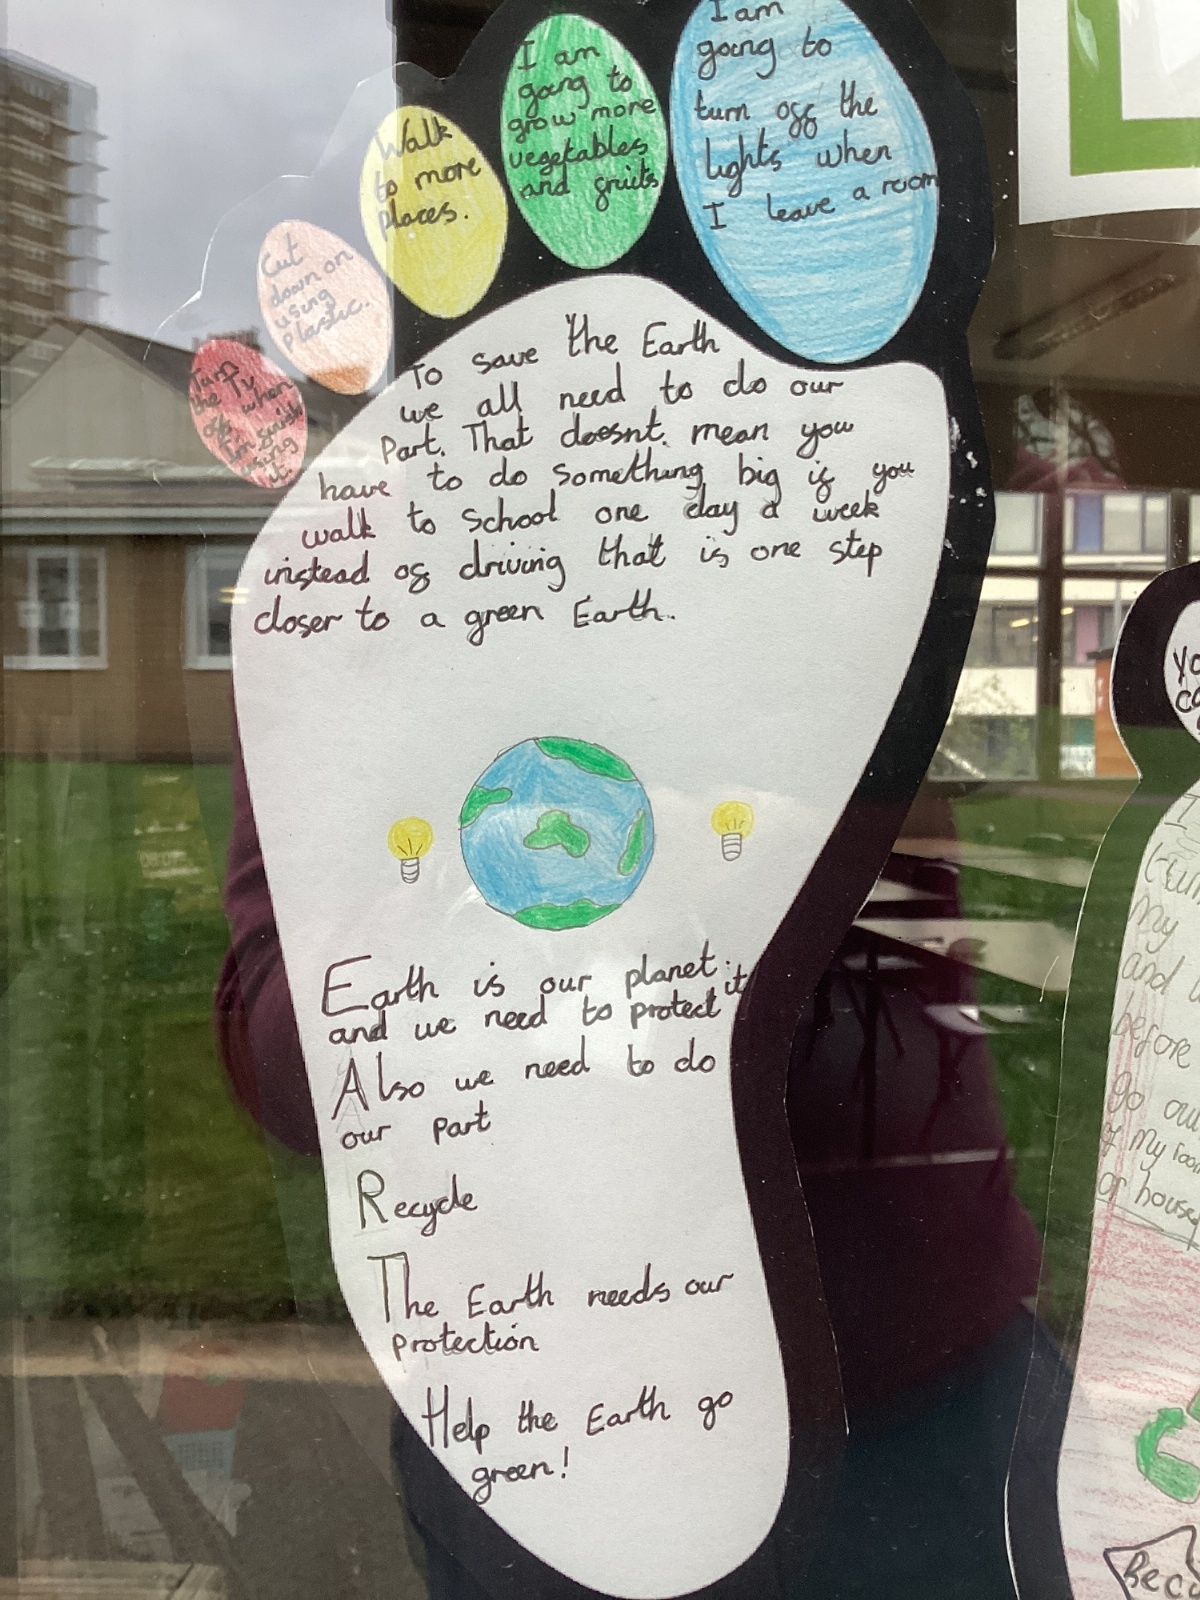 I am
going to
turn off the
lights when
I leave a room
I am
going to
grow more
vegetables
and fruits
Walk
to more
places.
Cut
down on
using
plastic.
Turn
the TV
off when
I'm finish
using
it.
To save the Earth
we all need to do our
Part. That doesnt. mean you
have to do something big if you
walk to school one day a week
instead of driving that is one step
closer to a green Earth.
Earth is our planet
and we need to protect it
Also we need to do
our part
Recycle
The Earth needs our
protection
Help the Earth go
green!
I
my
and
before
go
of my room
or house